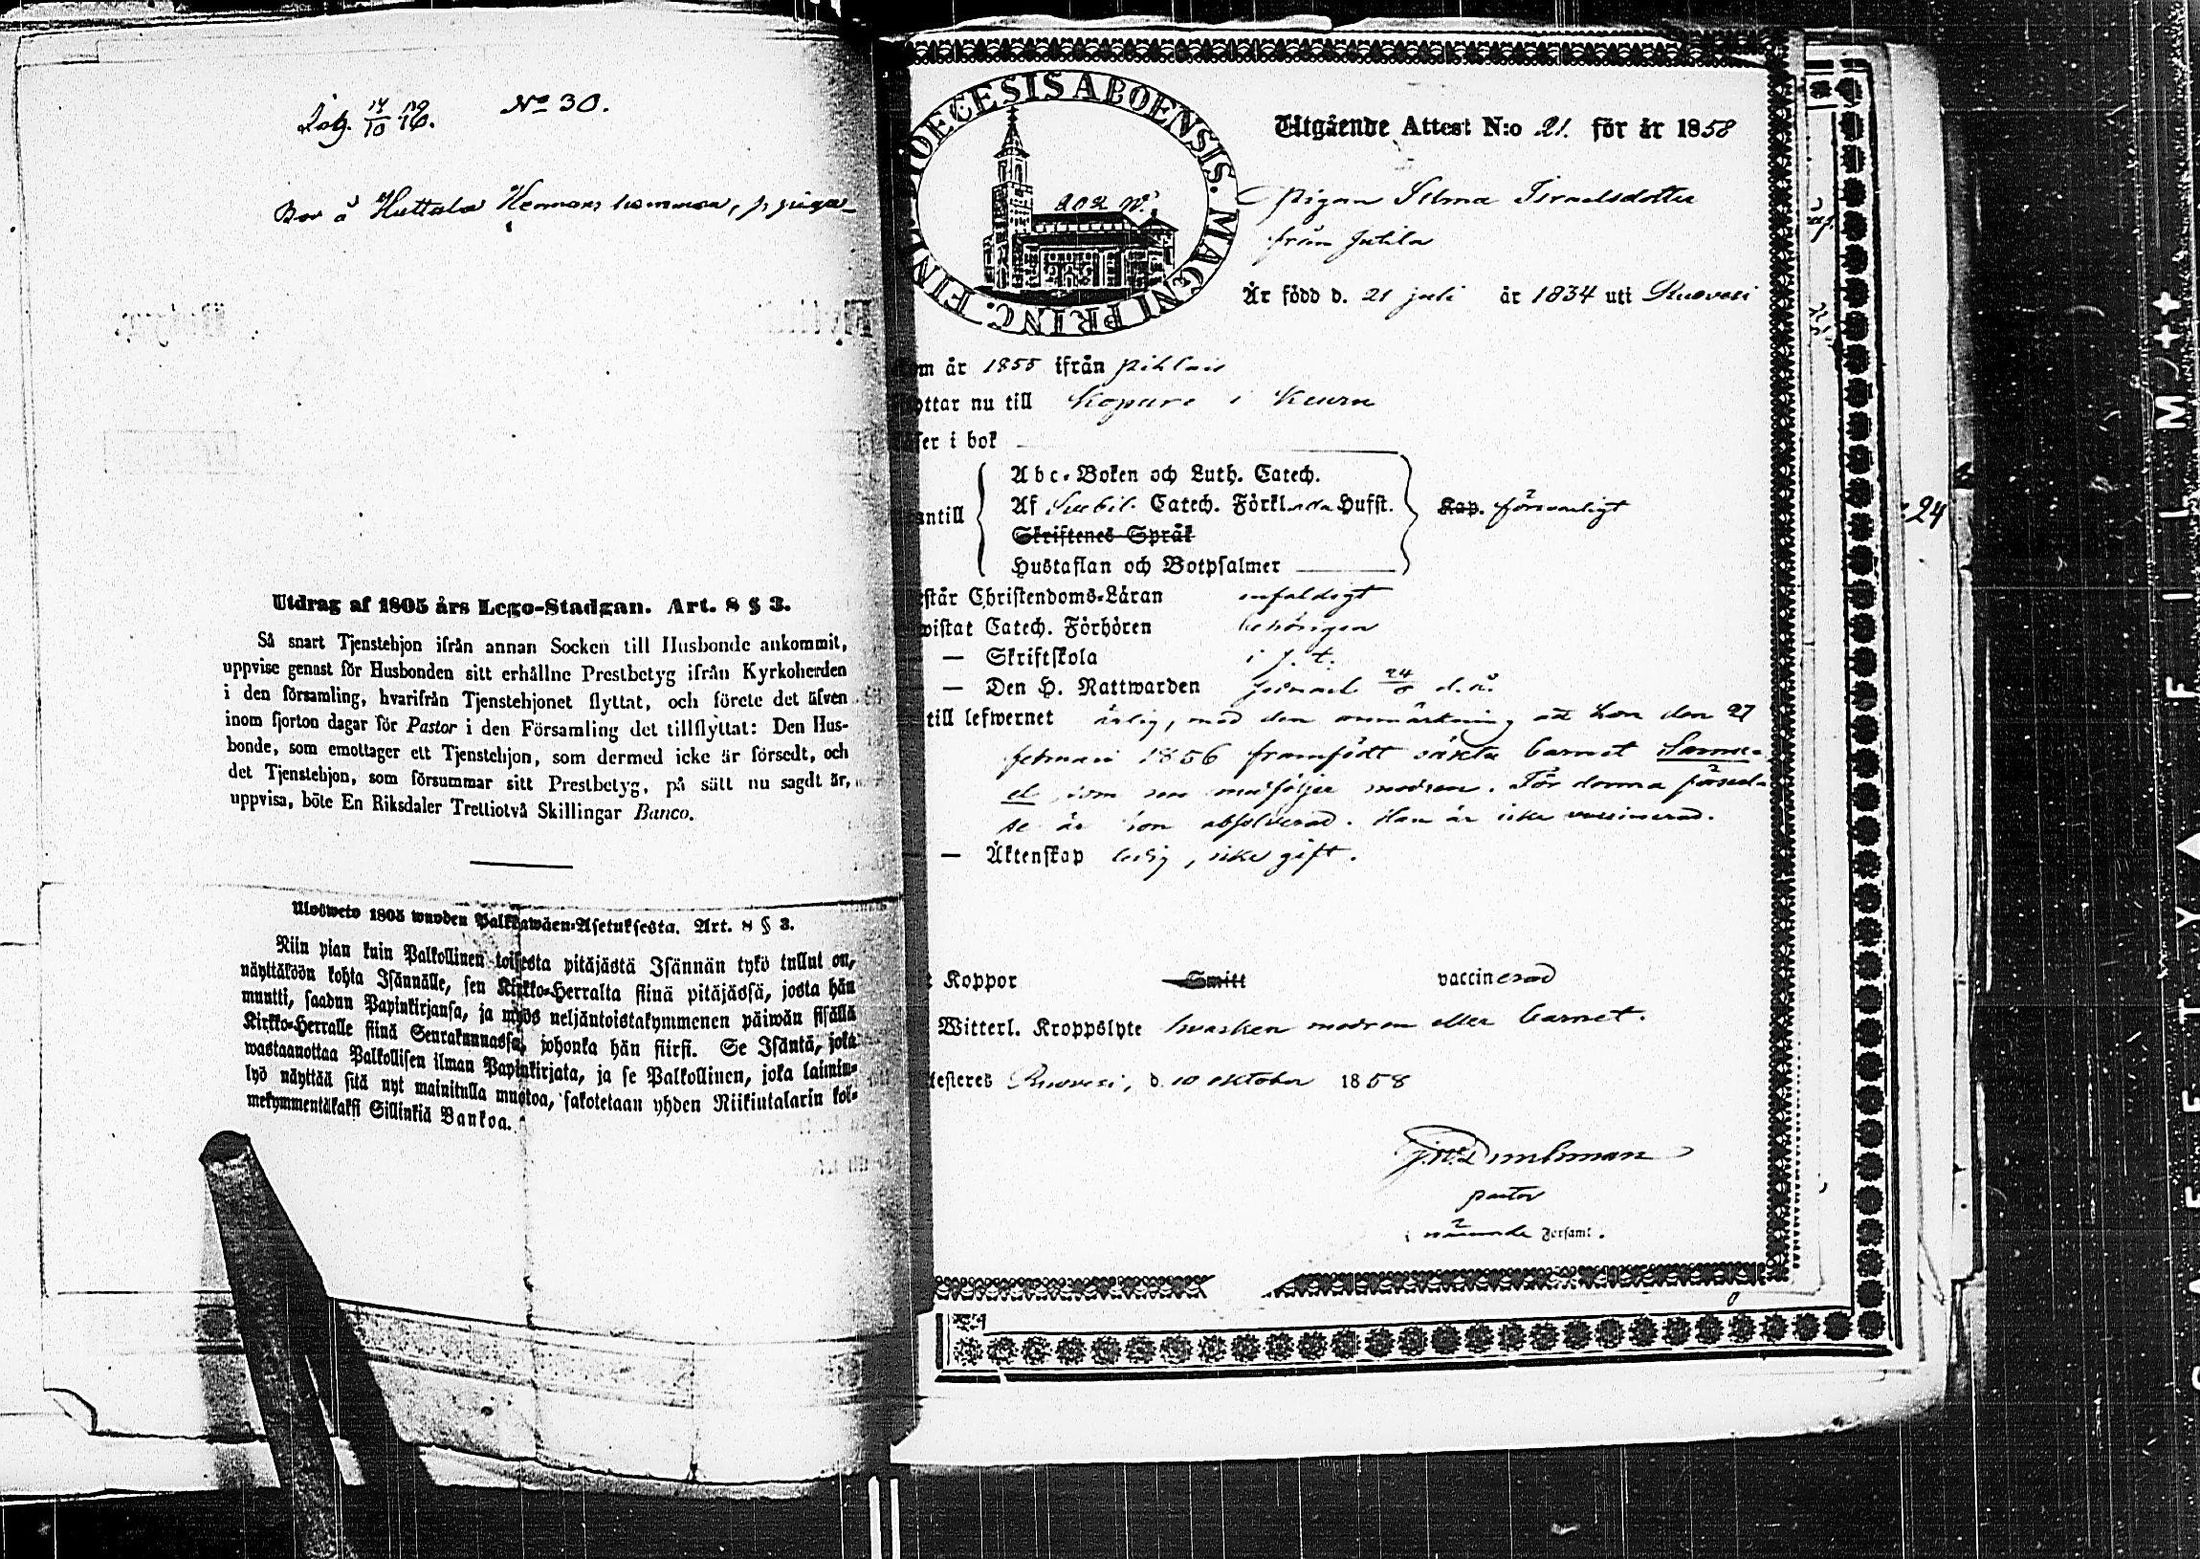 No 30.
Bor å Huttala Hermans
Utdrag af 1805 års Lego-Stadgan. Art. 8 § 3.
Så snart Tjenstehjon ifrån annan Socken till Husbonde ankommit,
uppvise genast för Husbonden sitt erhållne Prestbetyg ifrån Kyrkoherden
i den församling, hvarifrån Tjenstehjonet flyttat, och förete det äfven
inom fjorton dagar för Pastor i den Församling det tillflyttat: Den Hus-
bonde, som emottager ett Tjenstehjon, som dermed icke är försedt, och
det Tjenstehjon, som försummar sitt Prestbetyg, på sätt nu sagdt är,
uppvisa, böte En Riksdaler Trettiotvå Skillingar Banco.
Ulosweto 1805 wuoden Palkkawäen-Asetuksesta. Art. 8 § 3.
Niin pian kuin Palkollinen toisesta pitäjästä Isännän tykö tullut on,
näyttäköön kohta Isännälle, sen Kirkko-Herralta siinä pitäjässä, josta hän
muutti, saadun Papinkirjansa, ja myös neljäntoistakymmenen päiwän sisällä
Kirkko-Herralle siinä Seurakunnassa, johonka hän siirsi. Se Isäntä, joka
wastaanottaa Palkollisen ilman Papinkirjata, ja se Palkollinen, joka laimin-
lyö näyttää sitä nyt mainitulla muotoa, sakotetaan yhden Riikintalarin kol-
mekymmentäkaksi Sillinkiä Bankoa.
DIOECESIS ABOENSIS. MAGNI PRINC. FINL.
Utgående Attest N:o 21. för år 1858
pigan Selma Israelsdotter
från Jutila
Är född d. 21 juli år 1834 uti Ruovesi
om år 1855 ifrån Pihlais
ottar nu till Kopura i Keuru
ser i bok
Abc-Boken och Luth. Catech.
antill Af Svebil. Catech. Förkl. Hufst. Kap. försvarligt
Skriftenes Språk
Hustaflan och Botpsalmer
står Christendoms-Läran enfaldigt
wistat Catech. Förhören behörigen
— Skriftskola i s. t.
— Den H. Nattwarden d. å.
till lefwernet ärlig, med den anmärkning att hon den 27
februari 1856 framfödt oäkta barnet Samu-
el som nu medföljer modren. För denna förseel-
se är hon absolverad. Han är icke vaccinerad.
— Äktenskap ledig, icke gift.
Koppor Smitt vaccinerad
Witterl. Kroppslyte hvarken modren eller barnet.
testeres Ruovesi, d. 10 oktober 1858
pastor
i nämnde Församl.
24